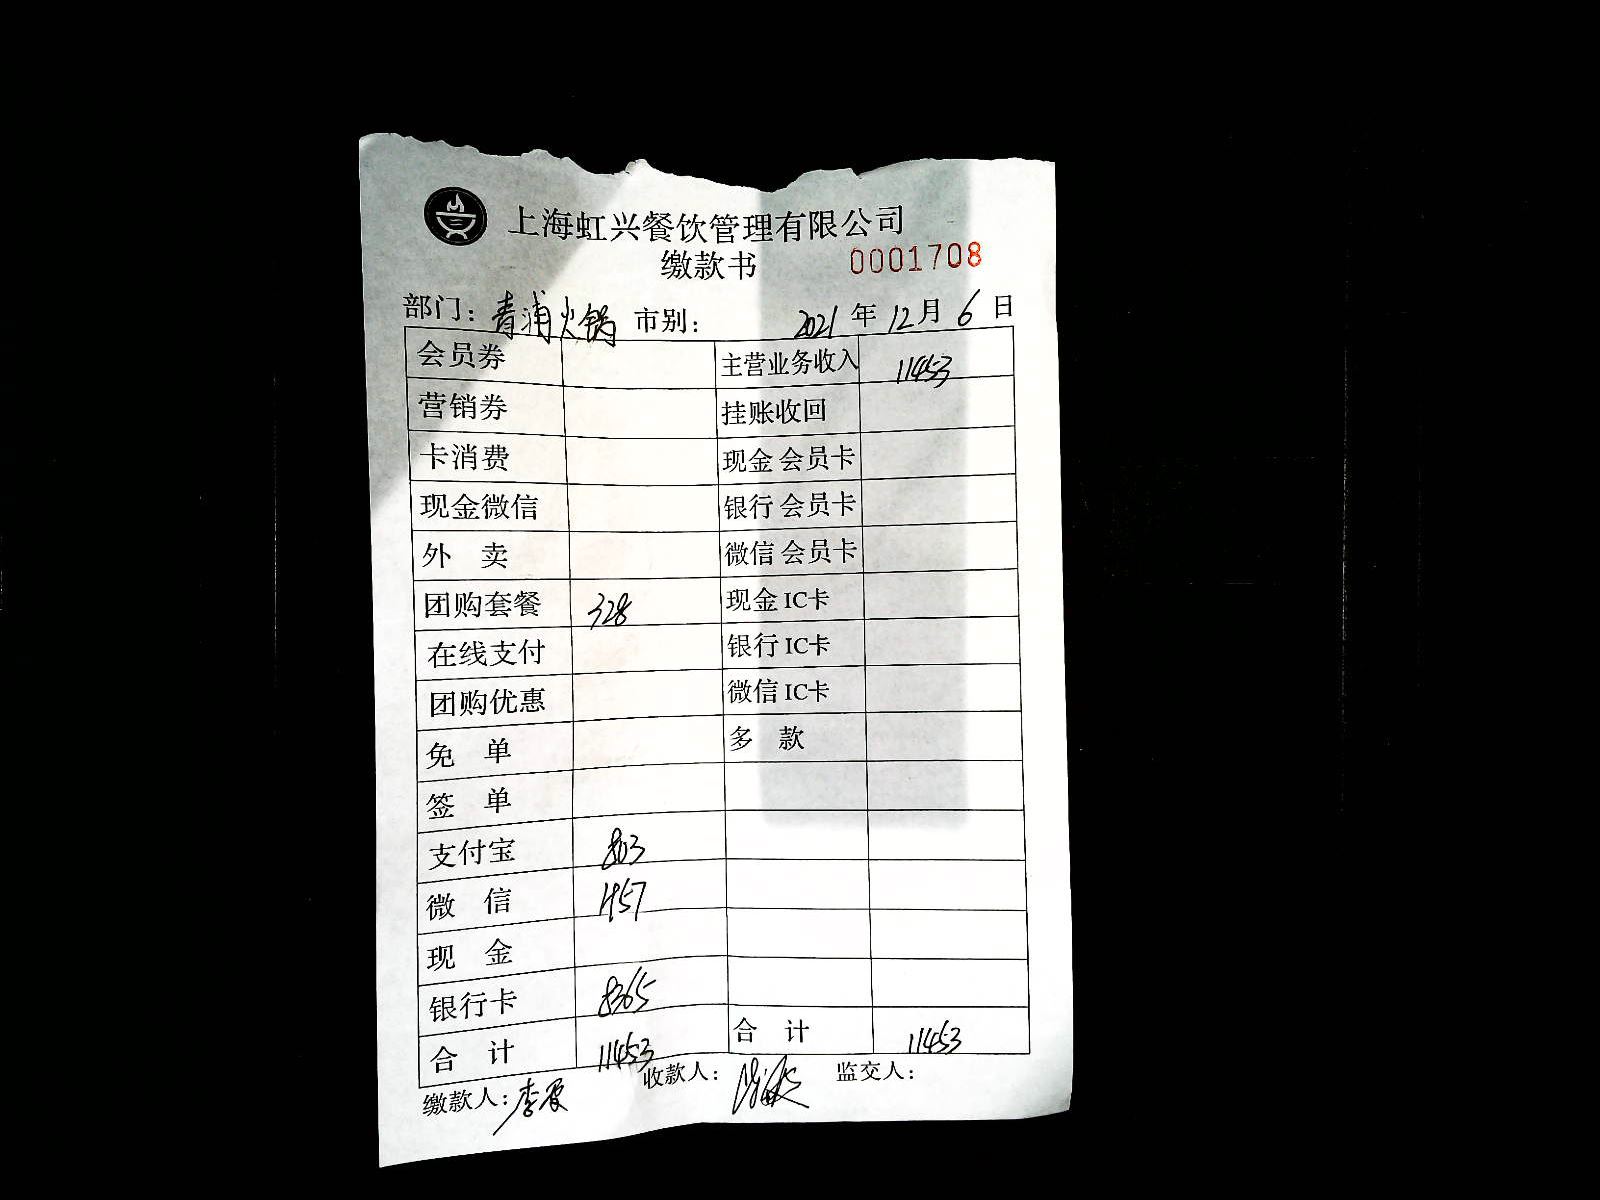 上海虹兴餐饮管理有限公司
缴款书 0001708
部门：青浦火锅 市别： 2021 年 12 月 6 日
会员券 主营业务收入 11453
营销券 挂账收回
卡消费 现金 会员卡
现金微信 银行 会员卡
外 卖 微信 会员卡
团购套餐 328 现金 IC卡
在线支付 银行 IC卡
团购优惠 微信 IC卡
免 单 多 款
签 单
支付宝 803
微 信 1957
现 金
银行卡 8365
合 计 11453 合 计 11453
缴款人： 收款人： 监交人：